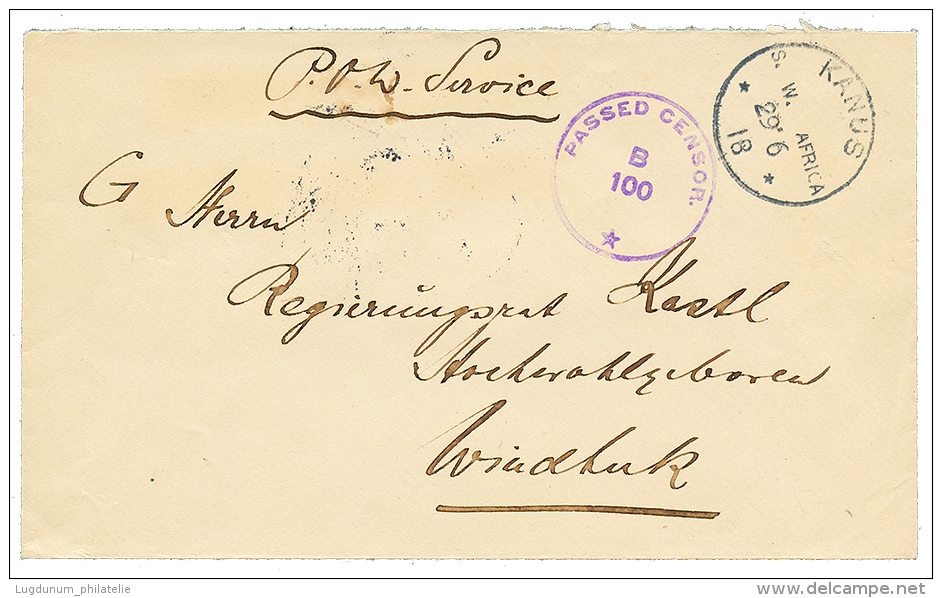 P.O.W. Service
KANUS
S. W. AFRICA
29 6
18
PASSED CENSOR.
B
100
G
Herrn
Regierungsrat Kastl
Hochwohlgeboren
Windhuk
Lugdunum_philatelie
delcampe.net